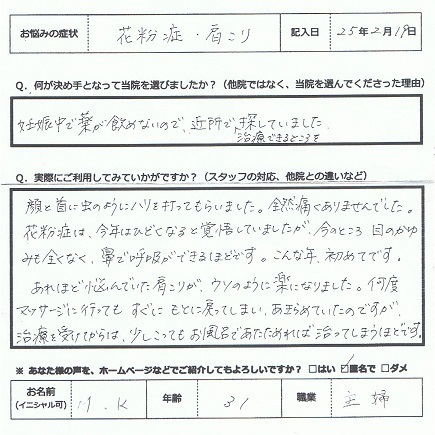 お悩みの症状 花粉症・肩こり 記入日 25年2月19日
Q．何が決め手となって当院を選びましたか？（他院ではなく、当院を選んでくださった理由）
妊娠中で薬が飲めないので、近所で探していました。
治療できるところを
Q．実際にご利用してみていかがですか？（スタッフの対応、他院との違いなど）
顔と首に虫のようにハリを打ってもらいました。全然痛くありませんでした。
花粉症は、今年はひどくなると覚悟していましたが、今のところ目のかゆ
みも全くなく、鼻で呼吸ができるほどです。こんな年、初めてです。
あれほど悩んでいた肩こりが、ウソのように楽になりました。何度
マッサージに行ってもすぐにもとに戻ってしまい、あきらめていたのですが、
治療を受けてからは、少しこってもお風呂であたためれば治ってしまうほどです。
※ あなた様の声を、ホームページなどでご紹介してもよろしいですか？ □はい ☑匿名で □ダメ
お名前 M.K 年齢 31 職業 主婦
（イニシャル可）